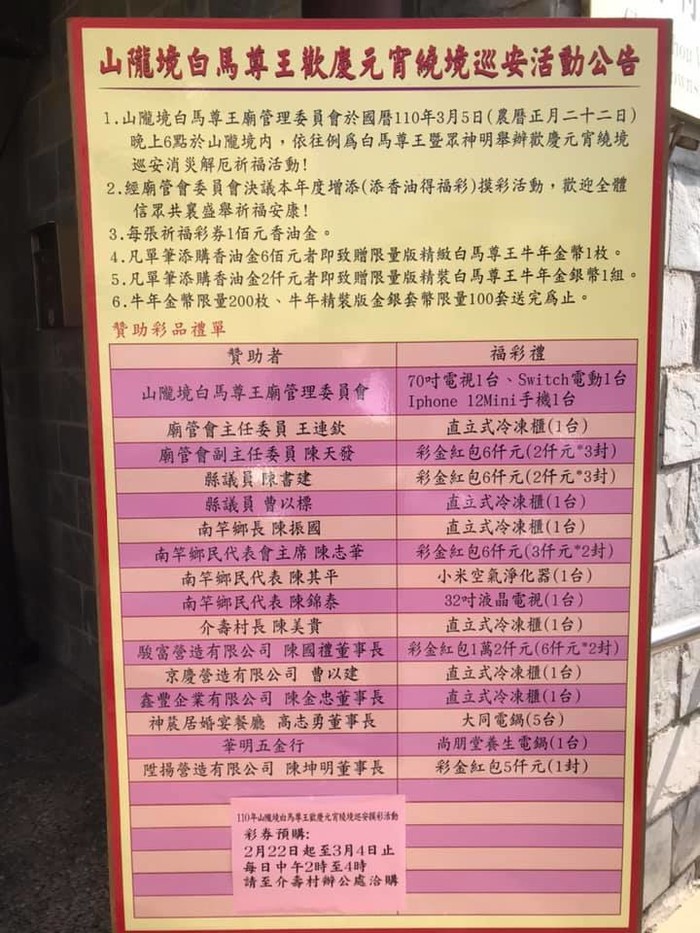 山隴境白馬尊王歡慶元宵繞境巡安活動公告
1.山隴境白馬尊王廟管理委員會於國曆110年3月5日(農曆正月二十二日)
晚上6點於山隴境內，依往例為白馬尊王暨眾神明舉辦歡慶元宵繞境
巡安消災解厄祈福活動!
2.經廟管會委員會決議本年度增添(添香油得福彩)摸彩活動，歡迎全體
信眾共襄盛舉祈福安康!
3.每張祈福彩券1佰元香油金。
4.凡單筆添購香油金6佰元者即致贈限量版精緻白馬尊王牛年金幣1枚。
5.凡單筆添購香油金2仟元者即致贈限量版精裝白馬尊王牛年金銀幣1組。
6.牛年金幣限量200枚、牛年精裝版金銀套幣限量100套送完為止。
贊助彩品禮單
贊助者 福彩禮
山隴境白馬尊王廟管理委員會 70吋電視1台、Switch電動1台
Iphone 12Mini手機1台
廟管會主任委員 王連欽 直立式冷凍櫃(1台)
廟管會副主任委員 陳天發 彩金紅包6仟元(2仟元*3封)
縣議員 陳書建 彩金紅包6仟元(2仟元*3封)
縣議員 曹以標 直立式冷凍櫃(1台)
南竿鄉長 陳振國 直立式冷凍櫃(1台)
南竿鄉民代表會主席 陳志華 彩金紅包6仟元(3仟元*2封)
南竿鄉民代表 陳其平 小米空氣淨化器(1台)
南竿鄉民代表 陳錦泰 32吋液晶電視(1台)
介壽村長 陳美貴 直立式冷凍櫃(1台)
駿富營造有限公司 陳國禮董事長 彩金紅包1萬2仟元(6仟元*2封)
京慶營造有限公司 曹以建 直立式冷凍櫃(1台)
鑫豐企業有限公司 陳金忠董事長 直立式冷凍櫃(1台)
神莀居婚宴餐廳 高志勇董事長 大同電鍋(5台)
華明五金行 尚朋堂養生電鍋(1台)
陞揚營造有限公司 陳坤明董事長 彩金紅包5仟元(1封)
110年山隴境白馬尊王歡慶元宵繞境巡安摸彩活動
彩券預購:
2月22日起至3月4日止
每日中午2時至4時
請至介壽村辦公處洽購